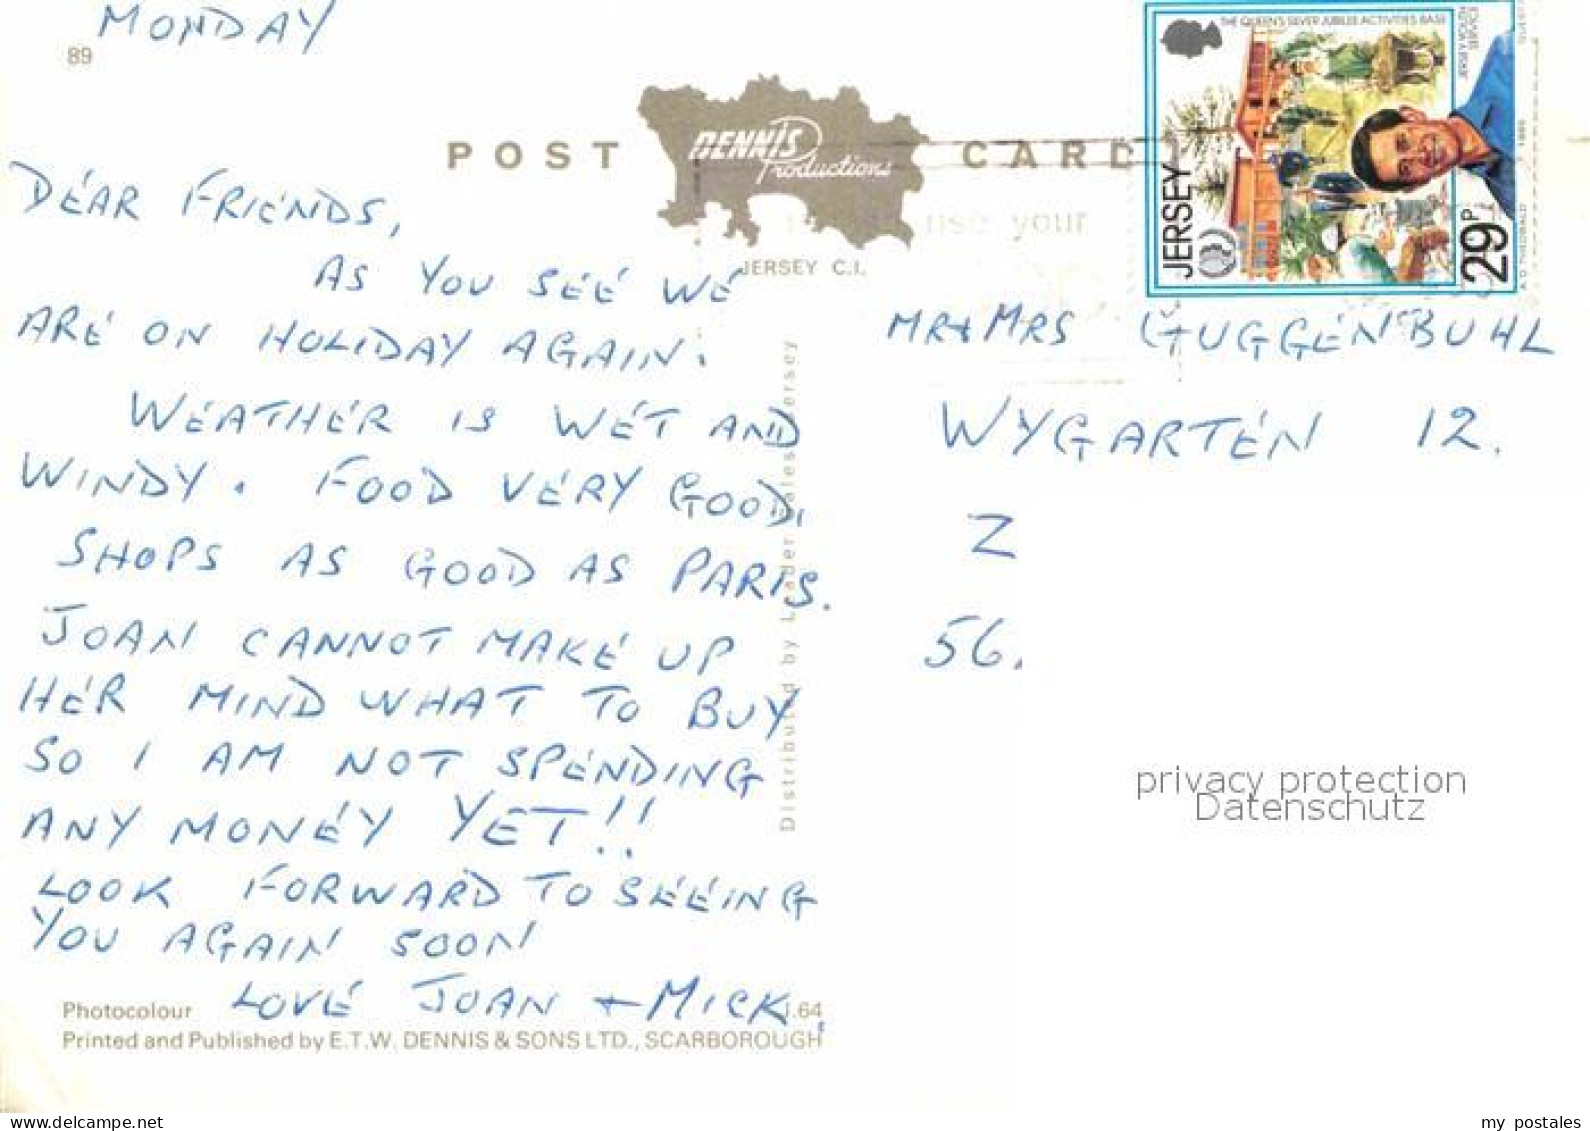 MONDAY
89
POST CARD
DENNIS
Productions
JERSEY C.I.
THE QUEEN'S SILVER JUBILEE ACTIVITIES BASE
JERSEY
29P
use your
DEAR FRIENDS,
AS YOU SEE WE
ARE ON HOLIDAY AGAIN.
WEATHER IS WET AND
WINDY. FOOD VERY GOOD,
SHOPS AS GOOD AS PARIS.
JOAN CANNOT MAKE UP
HER MIND WHAT TO BUY
SO I AM NOT SPENDING
ANY MONEY YET!!
LOOK FORWARD TO SEEING
YOU AGAIN SOON
LOVE JOAN + MICK.
MR & MRS GUGGENBUHL
WYGARTEN 12.
Z
56.
Distributed by Leader Sales Jersey
privacy protection
Datenschutz
Photocolour
J.64
Printed and Published by E.T.W. DENNIS & SONS LTD., SCARBOROUGH
my postales